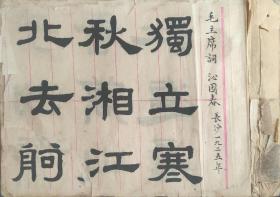 毛主席詞 沁園春 長沙 一九二五年
獨立寒
秋湘江
北去